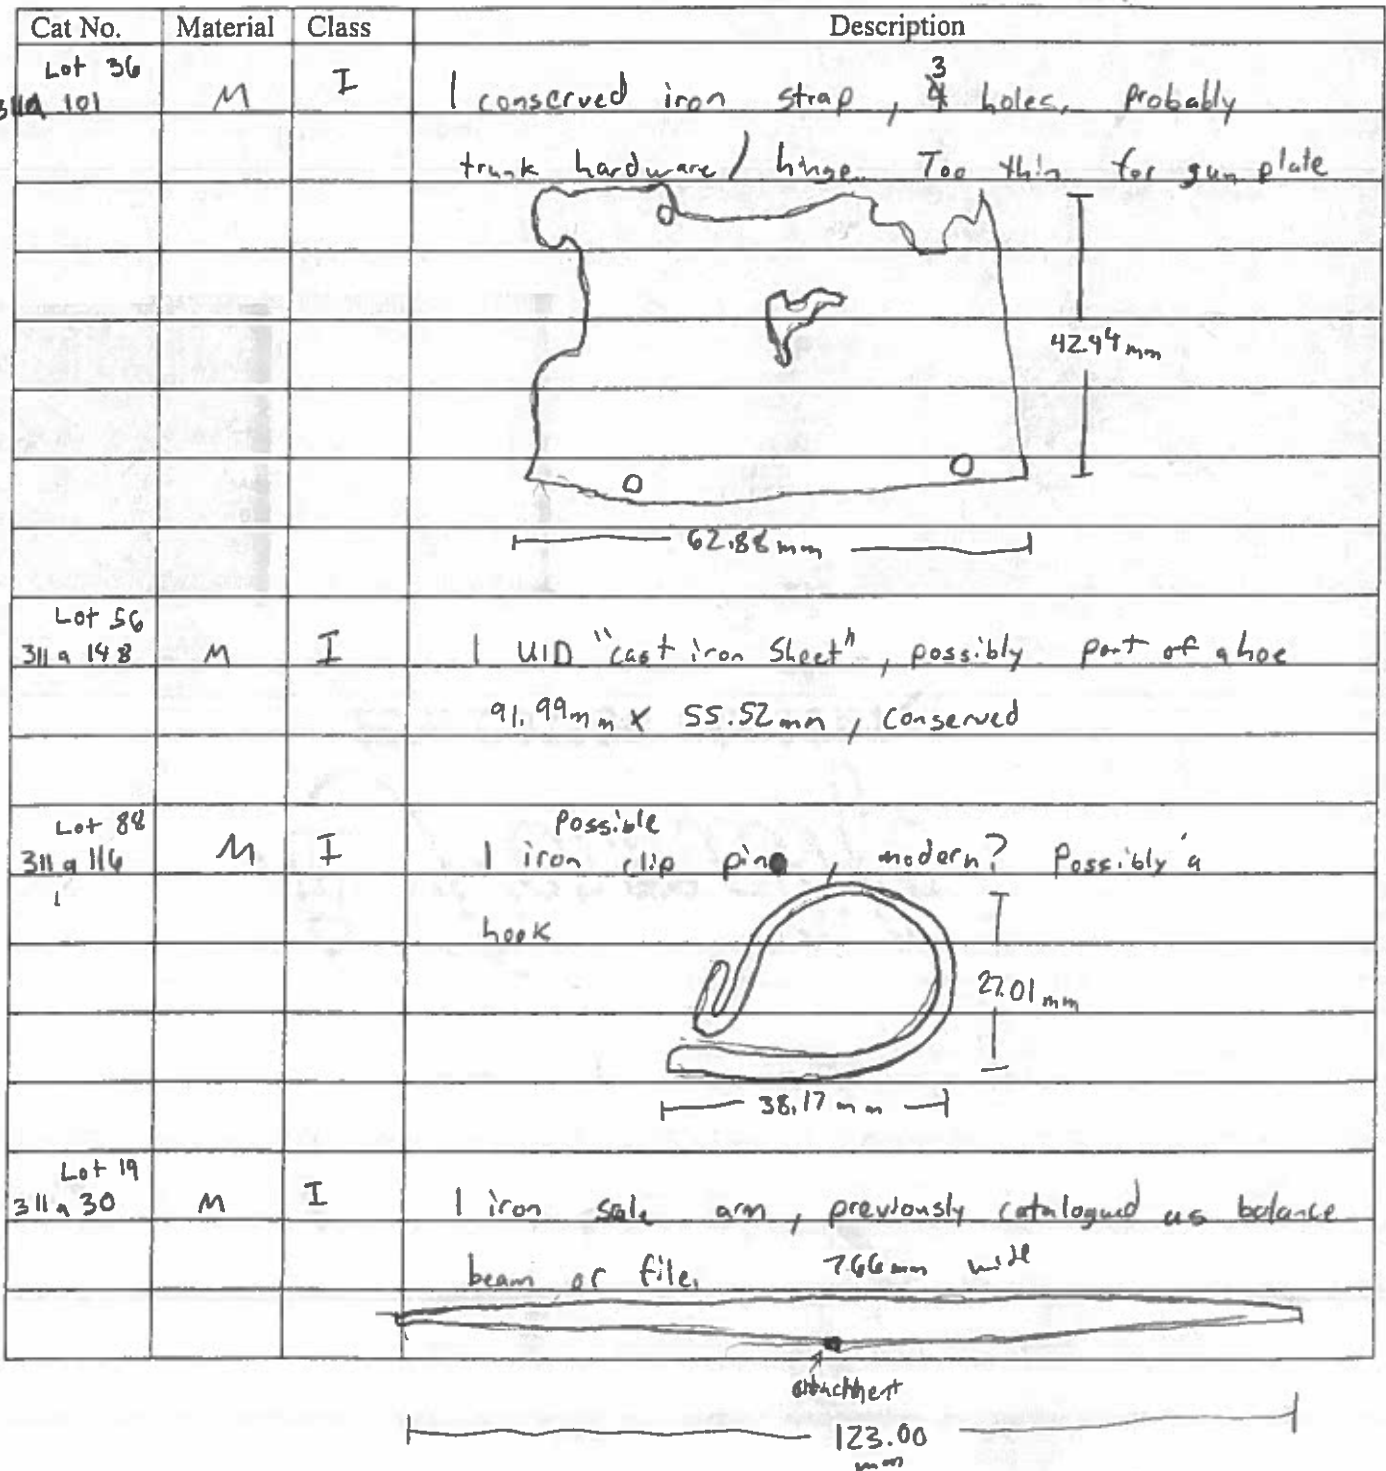 Cat No. Material Class Description
Lot 36
311a 101 M I 1 conserved iron strap, 3 holes, probably
trunk hardware / hinge. Too thin for gun plate
42.94 mm
62.88 mm
Lot 56
311a 148 M I 1 UID "cast iron sheet", possibly part of a hoe
91.99mm x 55.52mm, conserved
Lot 88
311a 116 M I 1 possible iron clip pin, modern? Possibly a
hook
27.01 mm
38.17 mm
Lot 19
311a 30 M I 1 iron scale arm, previously catalogued as balance
beam or file. 7.66mm wide
attachment
123.00
mm